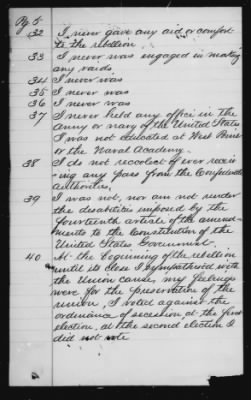 Pg 5
32 I never gave any aid or comfort
to the rebellion
33 I never was engaged in making
any raids
34 I never was
35 I never was
36 I never was
37 I never held any office in the
Army or navy of the United States
I was not educated at West Point
or the Naval Academy.
38 I do not reccolect of ever receiv
ing any pass from the Confederate
authorities,
39 I was not, nor am not under
the desabilities imposed by the
fourteenth article of the amend-
ments to the Constitution of the
United States Government.
40 At the beginning of the rebellion
until its close I sympathised with
the Union cause, my feelings
were for the preservation of the
union, I voted against the
ordinance of secession, at the first
election, at the second election I
did not vote